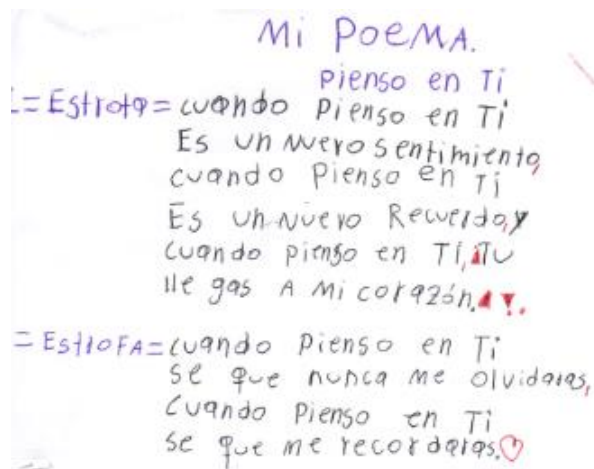 Mi PoEMA.
Pienso en Ti
= Estrofa = cuando Pienso en Ti
Es un nuevo sentimiento,
cuando Pienso en Ti
Es un nuevo Recuerdo, y
cuando pienso en Ti, Tu
llegas A mi corazón.
= EstroFA = cuando Pienso en Ti
se que nunca me olvidaras,
Cuando Pienso en Ti
se que me recordaras.